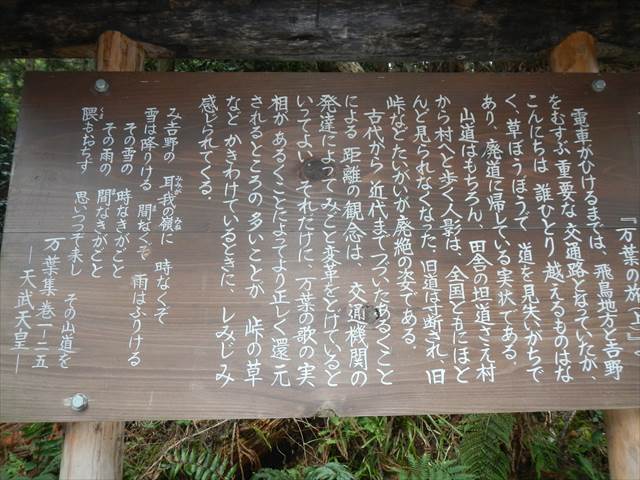 『万葉の旅(上)』
電車がひけるまでは、飛鳥地方と吉野
をむすぶ重要な交通路となっていたが、
こんにちは 誰ひとり 越えるものはな
く、草ぼうぼうで 道を見失いがちで
あり、廃道に帰している実状である。
山道はもちろん、田舎の坦道さえ村
から村へと歩く人影は、全国ともにほと
んど見られなくなった。旧道は寸断され、旧
峠などたいがいが廃絶の姿である。
古代から近代までつづいたあるくこと
による 距離の観念は、交通機関の
発達によってみごと変革をとげていると
いってよい。それだけに、万葉の歌の実
相が あるくことによってより正しく還元
されるところの多いことが 峠の草
など かきわけているときに、しみじみ
感じられてくる。
み吉野の 耳我の嶺に 時なくぞ
雪は降りける 間なくぞ 雨はふりける
その雪の 時なきがごと
その雨の 間なきがごと
隈もおちず 思いつつぞ来し その山道を
万葉集 巻一・二五
―天武天皇―